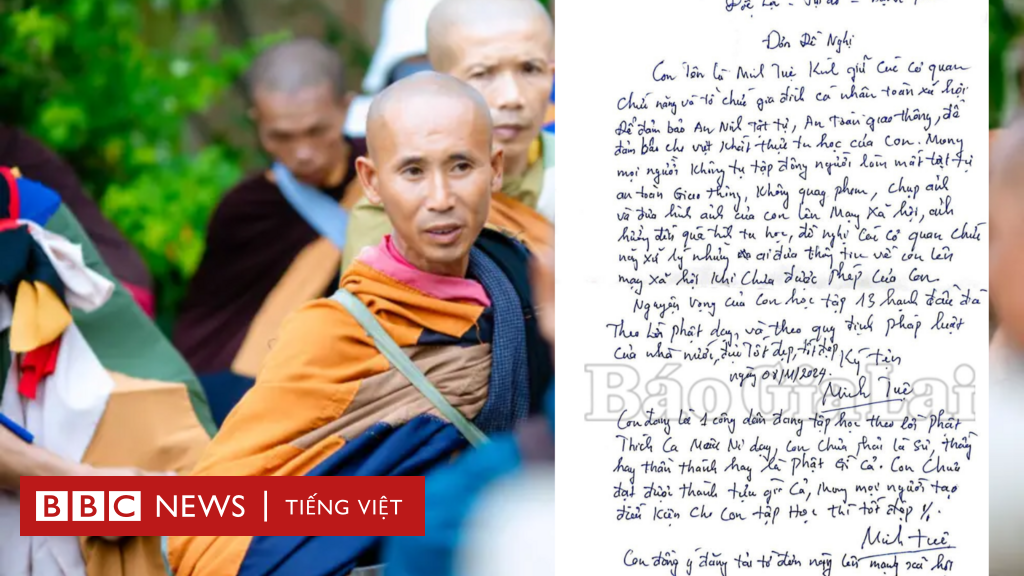 Độc lập - Tự do - Hạnh
Đơn Đề Nghị
Con Tên là Minh Tuệ Kính gửi Các cơ quan
Chức năng và tổ chức gia đình cá nhân toàn xã hội
Để đảm bảo An Ninh Trật tự, An Toàn giao thông, để
đảm bảo cho việc khất thực tu học của Con. Mong
mọi người Không tụ tập đông người làm mất trật tự
an toàn Giao thông, Không quay phim, Chụp ảnh
và đưa hình ảnh của con lên Mạng Xã hội, ảnh
hưởng đến quá trình tu học, đề nghị Các cơ quan chức
năng xử lý những ai đưa thông tin về con lên
mạng xã hội khi Chưa được phép Của Con.
Nguyện vọng của Con học tập 13 hạnh đầu đà
Theo lời phật dạy, và theo quy định pháp luật
của nhà nước, đủ Tốt đẹp, tốt đẹp
Ký tên
ngày 08/11/2024.
Minh Tuệ
Báo Gia Lai
Con đang là 1 công dân đang tập học theo lời Phật
Thích Ca Mâu Ni dạy, Con Chưa phải là Sư, thầy
hay thần thánh hay là Phật gì cả. Con Chưa
đạt được thành tựu gì Cả, Mong mọi người tạo
điều Kiện Cho Con tập Học thì tốt đẹp %.
Minh Tuệ
Con đồng ý đăng tải tờ đơn này lên mạng xã hội
BBC NEWS | TIẾNG VIỆT